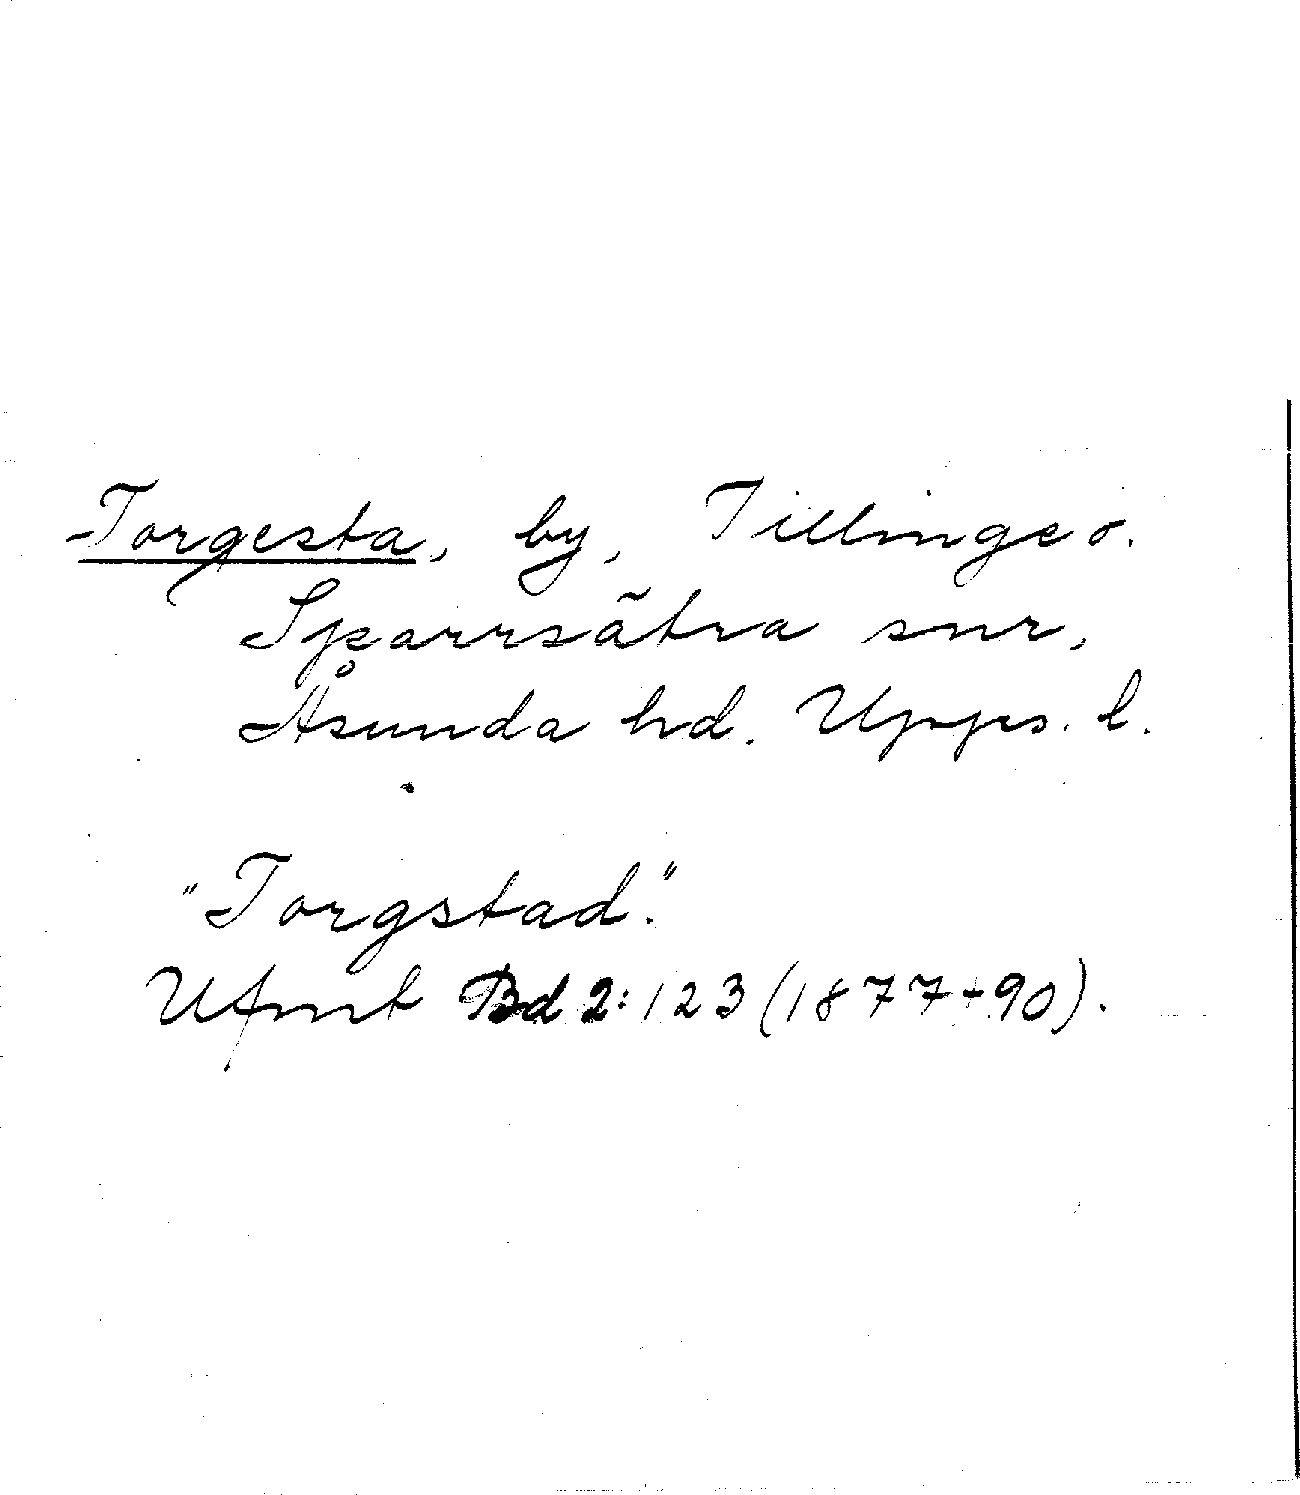 Torgesta, by, Tillinge o.
Sparrsätra snr,
Åsunda hd. Upps. l.
"Torgstad."
Ufmt Bd 2:123 (1877+90).